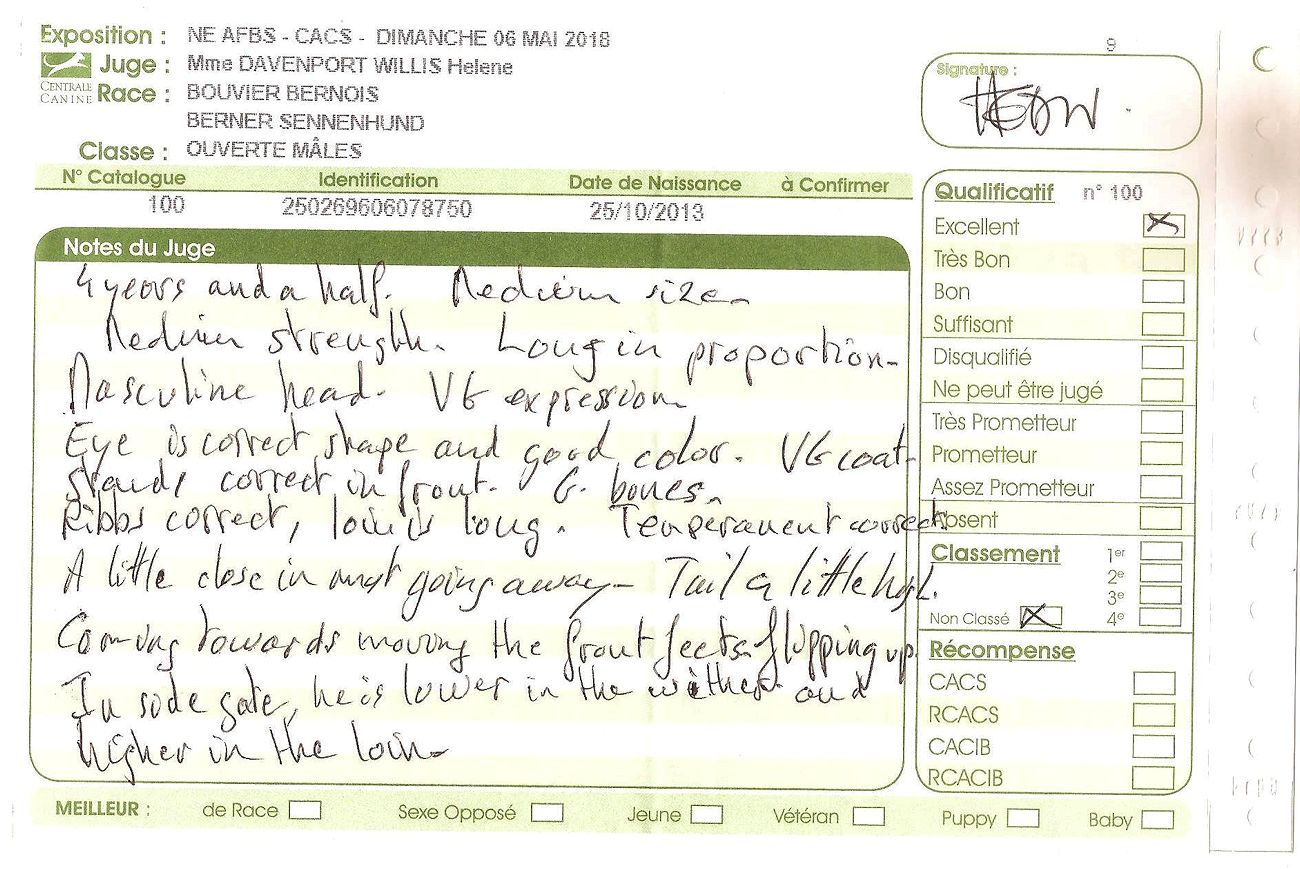 Exposition : NE AFBS - CACS - DIMANCHE 06 MAI 2018
Juge : Mme DAVENPORT WILLIS Helene
CENTRALE CANINE
Race : BOUVIER BERNOIS
BERNER SENNENHUND
Classe : OUVERTE MÂLES
9
Signature :
N° Catalogue Identification Date de Naissance à Confirmer
100 250269606078750 25/10/2013
Notes du Juge
4 years and a half. Medium size.
Medium strength. Long in proportion.
Masculine head. VG expression.
Eye is correct shape and good color. VG coat.
Stands correct in front. G. bones.
Ribbs correct, loin is long. Temperament correct.
A little close in going away. Tail a little high.
Coming towards moving the front feets flipping up.
In side gate, he is lower in the wither and
higher in the loin.
Qualificatif n° 100
Excellent
Très Bon
Bon
Suffisant
Disqualifié
Ne peut être jugé
Très Prometteur
Prometteur
Assez Prometteur
Absent
Classement 1er
2e
3e
Non Classé 4e
Récompense
CACS
RCACS
CACIB
RCACIB
MEILLEUR : de Race Sexe Opposé Jeune Vétéran Puppy Baby